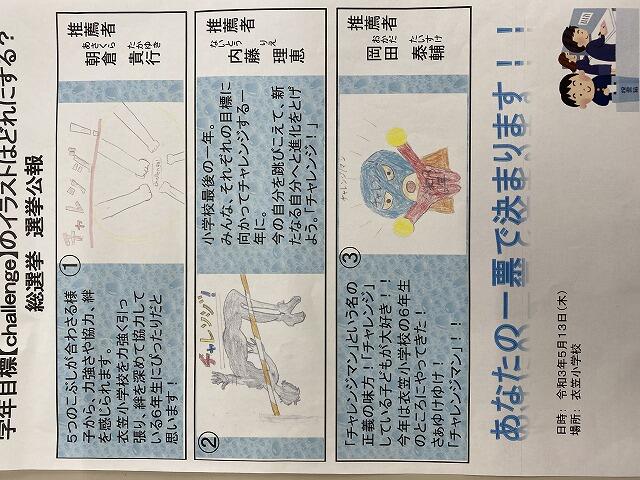 学年目標【challenge】のイラストはどれにする?
総選挙 選挙公報
①
チャレンジ!
推薦者
あさくら たかゆき
朝倉 貴行
5つのこぶしが合わさる様
子から、力強さや協力、絆
を感じられます。
衣笠小学校を力強く引っ
張り、絆を深めて協力して
いる6年生にぴったりだと
思います!
②
チャレンジ!
推薦者
ないとう りえ
内藤 理恵
小学校最後の一年。
みんな、それぞれの目標に
向かってチャレンジする一
年に。
今の自分を跳びこえて、新
たなる自分へと進化をとげ
よう。「チャレンジ!」
③
チャレンジマン
推薦者
おかだ たいすけ
岡田 泰輔
「チャレンジマン」という名の
正義の味方!!「チャレンジ」
している子どもが大好き!!
今年は衣笠小学校の6年生
のところにやってきた!
さぁゆけゆけ!
「チャレンジマン」!!
あなたの一票で決まります!!
日時: 令和3年5月13日(木)
場所: 衣笠小学校